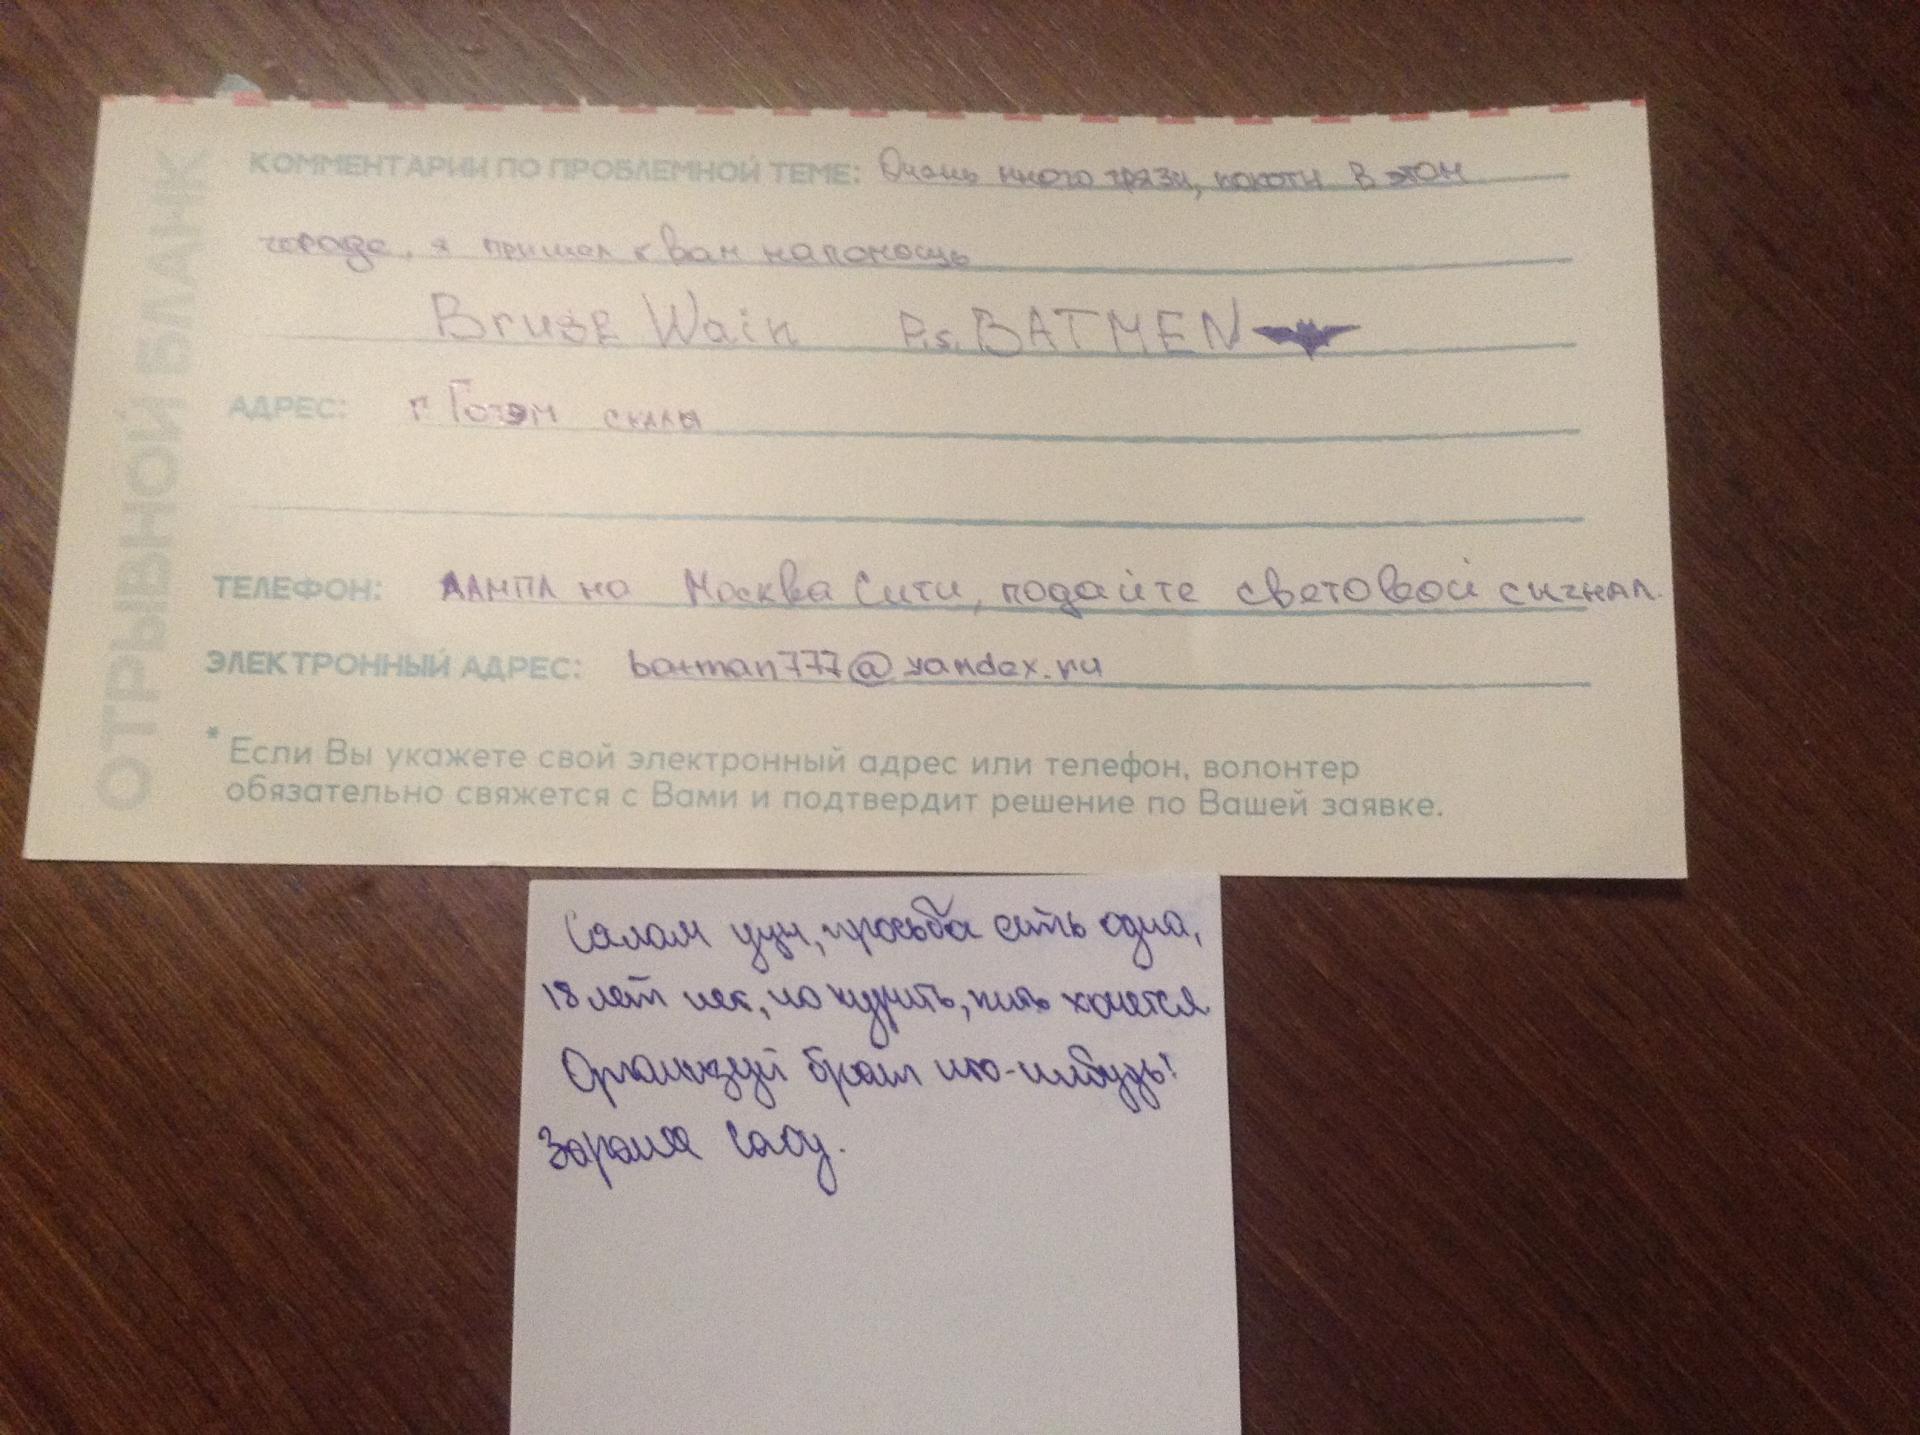 ОТРЫВНОЙ БЛАНК
КОММЕНТАРИИ ПО ПРОБЛЕМНОЙ ТЕМЕ: Очень много грязи, копоти в этом
городе, я пришел к вам на помощь
Bruse Wain P.s. BATMEN
АДРЕС: г. Готэм скалы
ТЕЛЕФОН: лампа на Москва Сити, подайте световой сигнал.
ЭЛЕКТРОННЫЙ АДРЕС: batman777@yandex.ru
* Если Вы укажете свой электронный адрес или телефон, волонтер
обязательно свяжется с Вами и подтвердит решение по Вашей заявке.
Салам уцы, просьба есть одна,
18 лет нет, но курить, пить хочется
Организуй брат что-нибудь!
Заранее